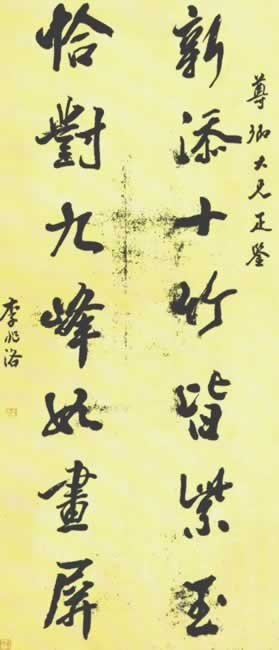 尊卿大兄正鑒
新添十竹皆紫玉
恰對九峰如畫屏
李兆洛